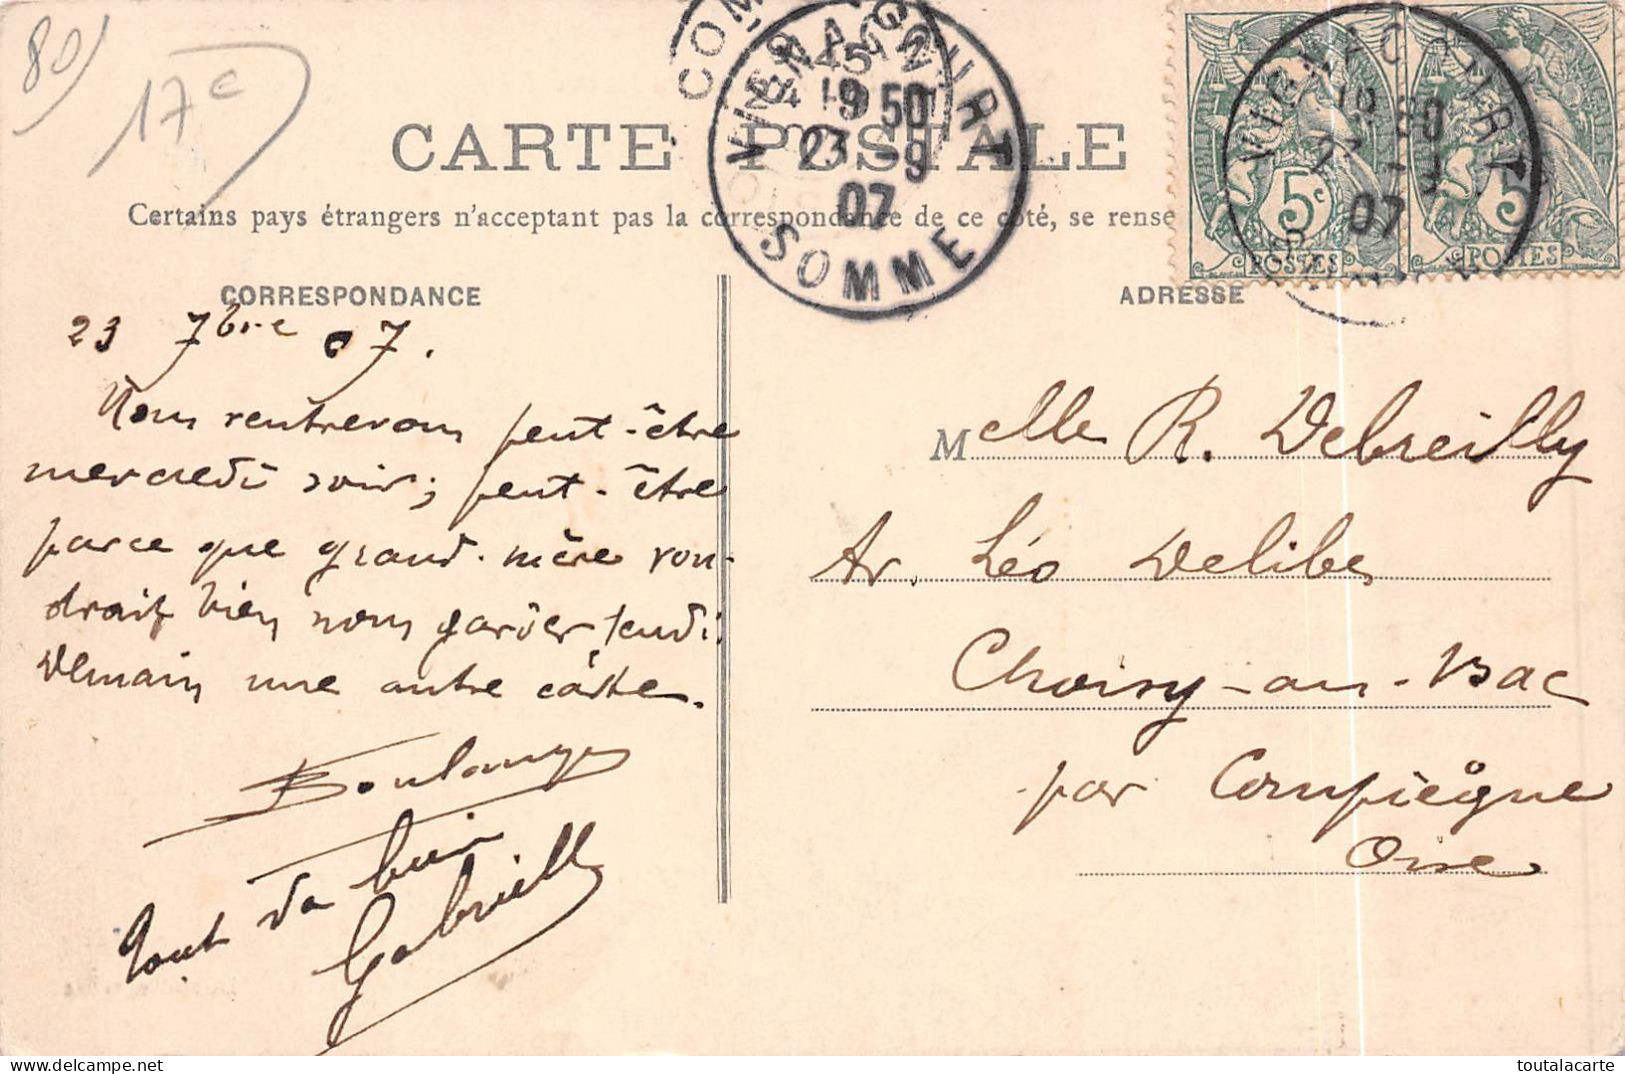 80
17c
CARTE POSTALE
Certains pays étrangers n'acceptant pas la correspondance de ce côté, se rense
VIGNACOURT
19 50
23 -9
07
SOMME
5c
POSTES
5
POSTES
CORRESPONDANCE
23 7bre 07.
Nous rentrerons peut-être
mercredi soir; peut-être
parce que grand-mère vou-
drait bien nous garder jeudi.
Demain une autre carte.
Boulanger
Tout va bien
Gabrielle
ADRESSE
Melle R. Debreilly
Av. Léo Delibes
Choisy-au-Bac
par Compiègne
Oise
toutalacarte